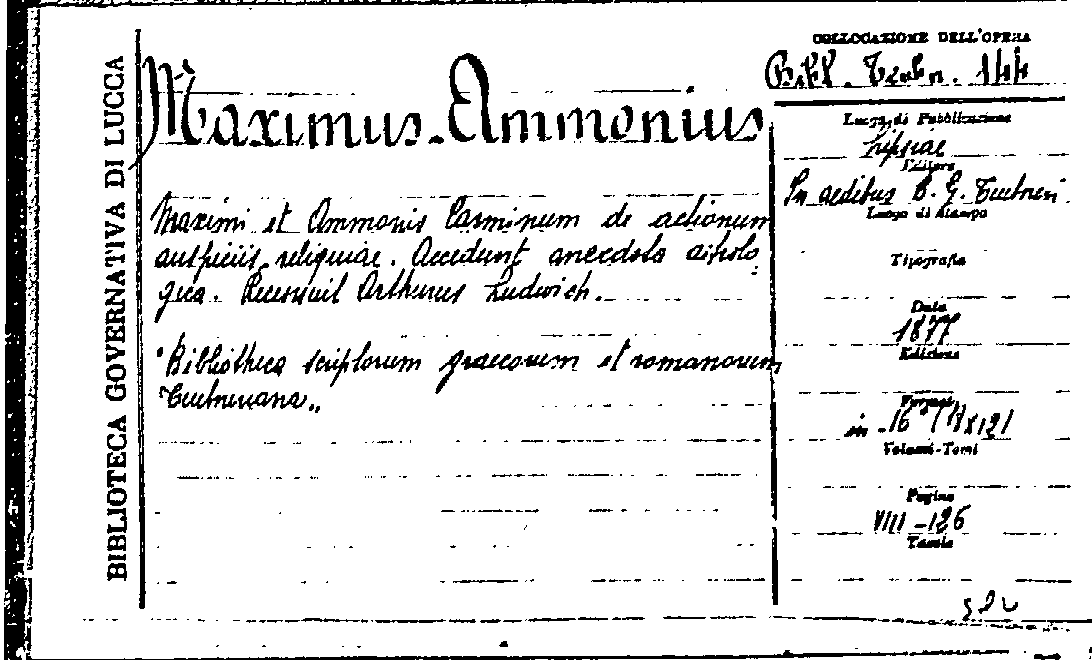 BIBLIOTECA GOVERNATIVA DI LUCCA
Maximus-Ammonius
Maximi et Ammonis Carminum de actionum
auspiciis reliquiae. Accedunt anecdota astrolo
gica. Recensuit Arthurus Ludwich.
"Bibliotheca scriptorum graecorum et romanorum
Teubneriana„
COLLOCAZIONE DELL'OPERA
Bibl. Teubn. 144
Luogo di Pubblicazione
Lipsiae
Editore
In aedibus B. G. Teubneri
Luogo di Stampa
Tipografia
Data
1877
Edizione
Formato
in -16°
Volumi-Tomi
Pagine
VIII-126
Tavole